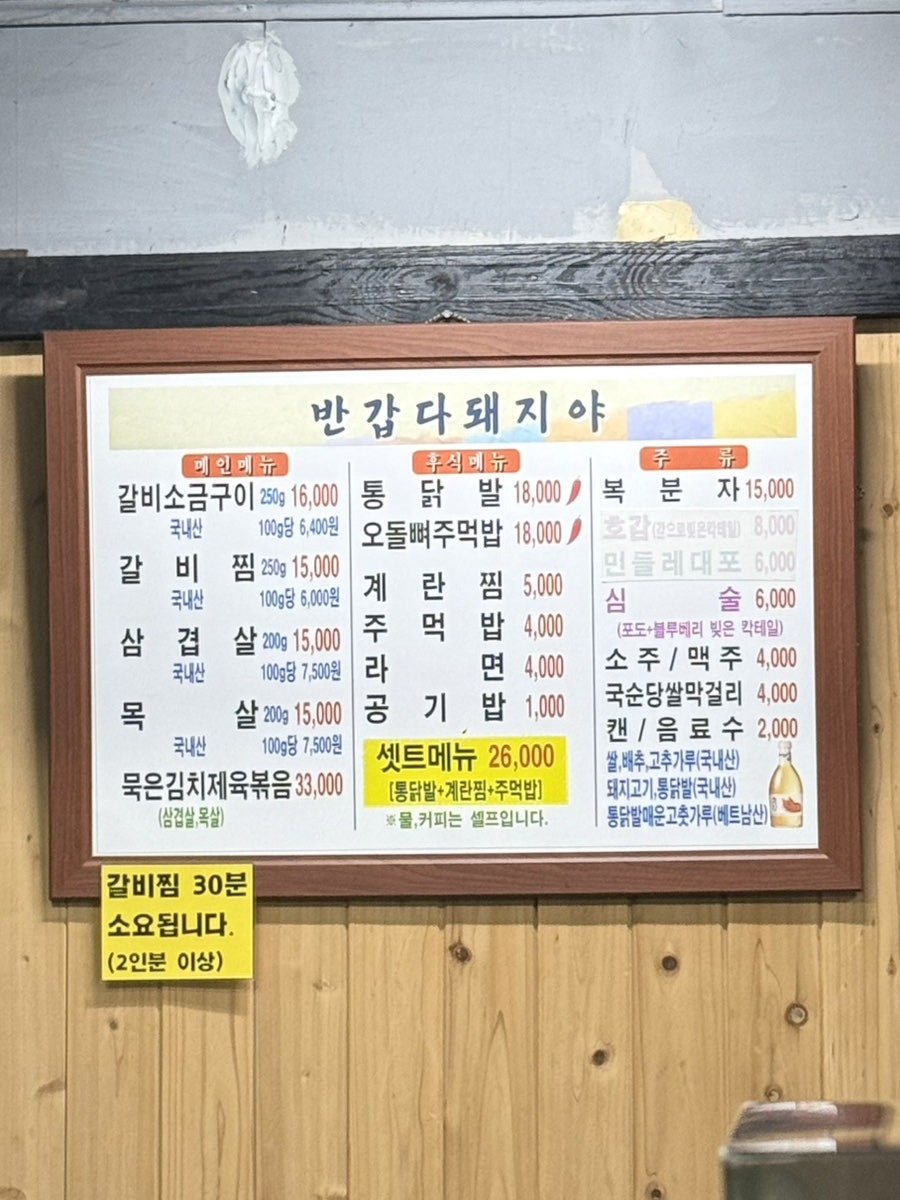 반갑다돼지야
메인메뉴
갈비소금구이 250g 16,000
국내산 100g당 6,400원
갈비찜 250g 15,000
국내산 100g당 6,000원
삼겹살 200g 15,000
국내산 100g당 7,500원
목살 200g 15,000
국내산 100g당 7,500원
묵은김치제육볶음 33,000
(삼겹살,목살)
후식메뉴
통닭발 18,000
오돌뼈주먹밥 18,000
계란찜 5,000
주먹밥 4,000
라면 4,000
공기밥 1,000
셋트메뉴 26,000
[통닭발+계란찜+주먹밥]
※물,커피는 셀프입니다.
주류
복분자 15,000
호감(감으로빚은칵테일) 8,000
민들레대포 6,000
심술 6,000
(포도+블루베리 빚은 칵테일)
소주/맥주 4,000
국순당쌀막걸리 4,000
캔/음료수 2,000
쌀,배추,고추가루(국내산)
돼지고기,통닭발(국내산)
통닭발매운고춧가루(베트남산)
갈비찜 30분
소요됩니다.
(2인분 이상)